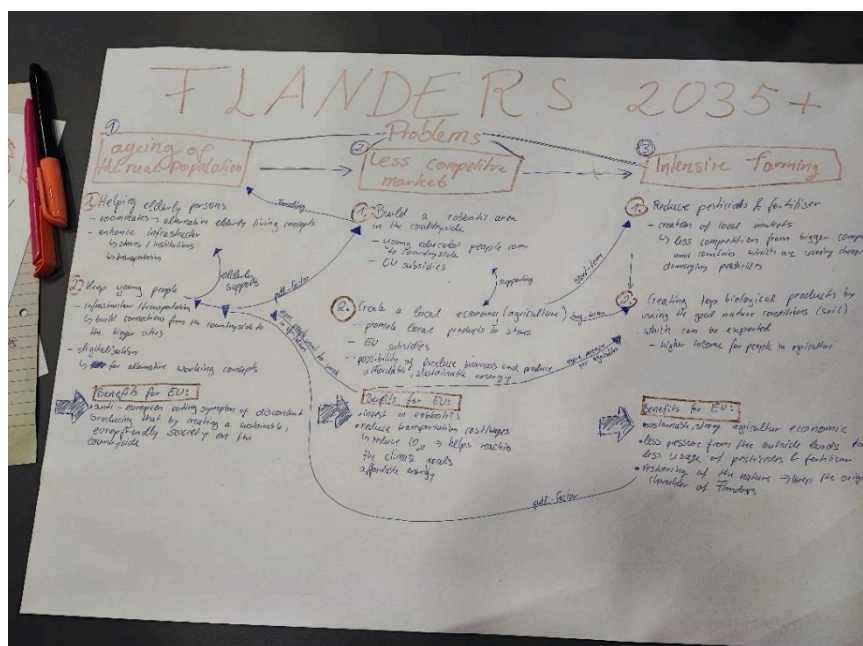 FLANDERS 2035+
Problems
1
ageing of
the rural population
1. Helping elderly persons
- roommates → alternative elderly living concepts
- enhance infrastructur
↳ stores / institutions
↳ transportation
elderly
support
2. Keep young people
- infrastructur / transportation
↳ build connections from the countryside to
the bigger cities
- digitalisation
↳ for alternative working concepts
Benefits for EU:
• anti-european voting symptom of discontent
↳ reducing that by creating a sustainable,
europfriendly society on the
countryside
2.
less competitive
market
1. Build a robotic area
in the countryside
- young educated people come
to countryside
- EU subsidies
pull-factor
supporting
2. Create a local economy (agriculture)
- promote local products in stores
- EU subsidies
- possibility of produce biomass and produce
affordable, sustainable energy
Benefits for EU:
• invest in robotics
• reduce transportation
↳ reduce CO2 → helps reaching
the climate goals
affordable energy
3
Intensive Farming
short-term
1. Reduce pesticids & fertiliser
- creation of local markets
↳ less competition from bigger
and countries which are using
damaging pesticids
long-term
2. Creating top biological products by
using the good nature conditions (soil)
which can be exported
- higher income for people in agricultur
Benefits for EU:
• sustainable, strong agricultur economic
• less pressure from the outside leads
less usage of pesticids & fertiliser
• restoring of the nature → keep the
character of Flanders
pull-factor